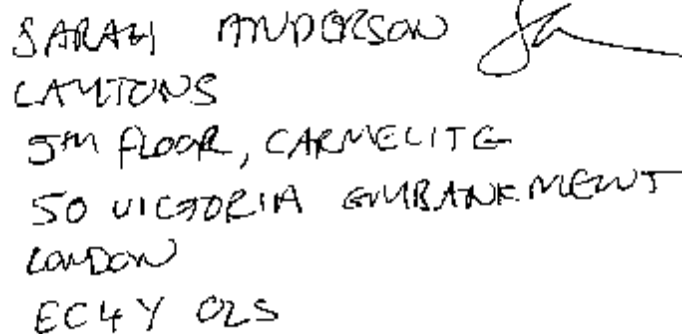 SARAH ANDERSON
LAYTONS
5TH FLOOR, CARMELITE
50 VICTORIA EMBANKMENT
LONDON
EC4Y 0LS